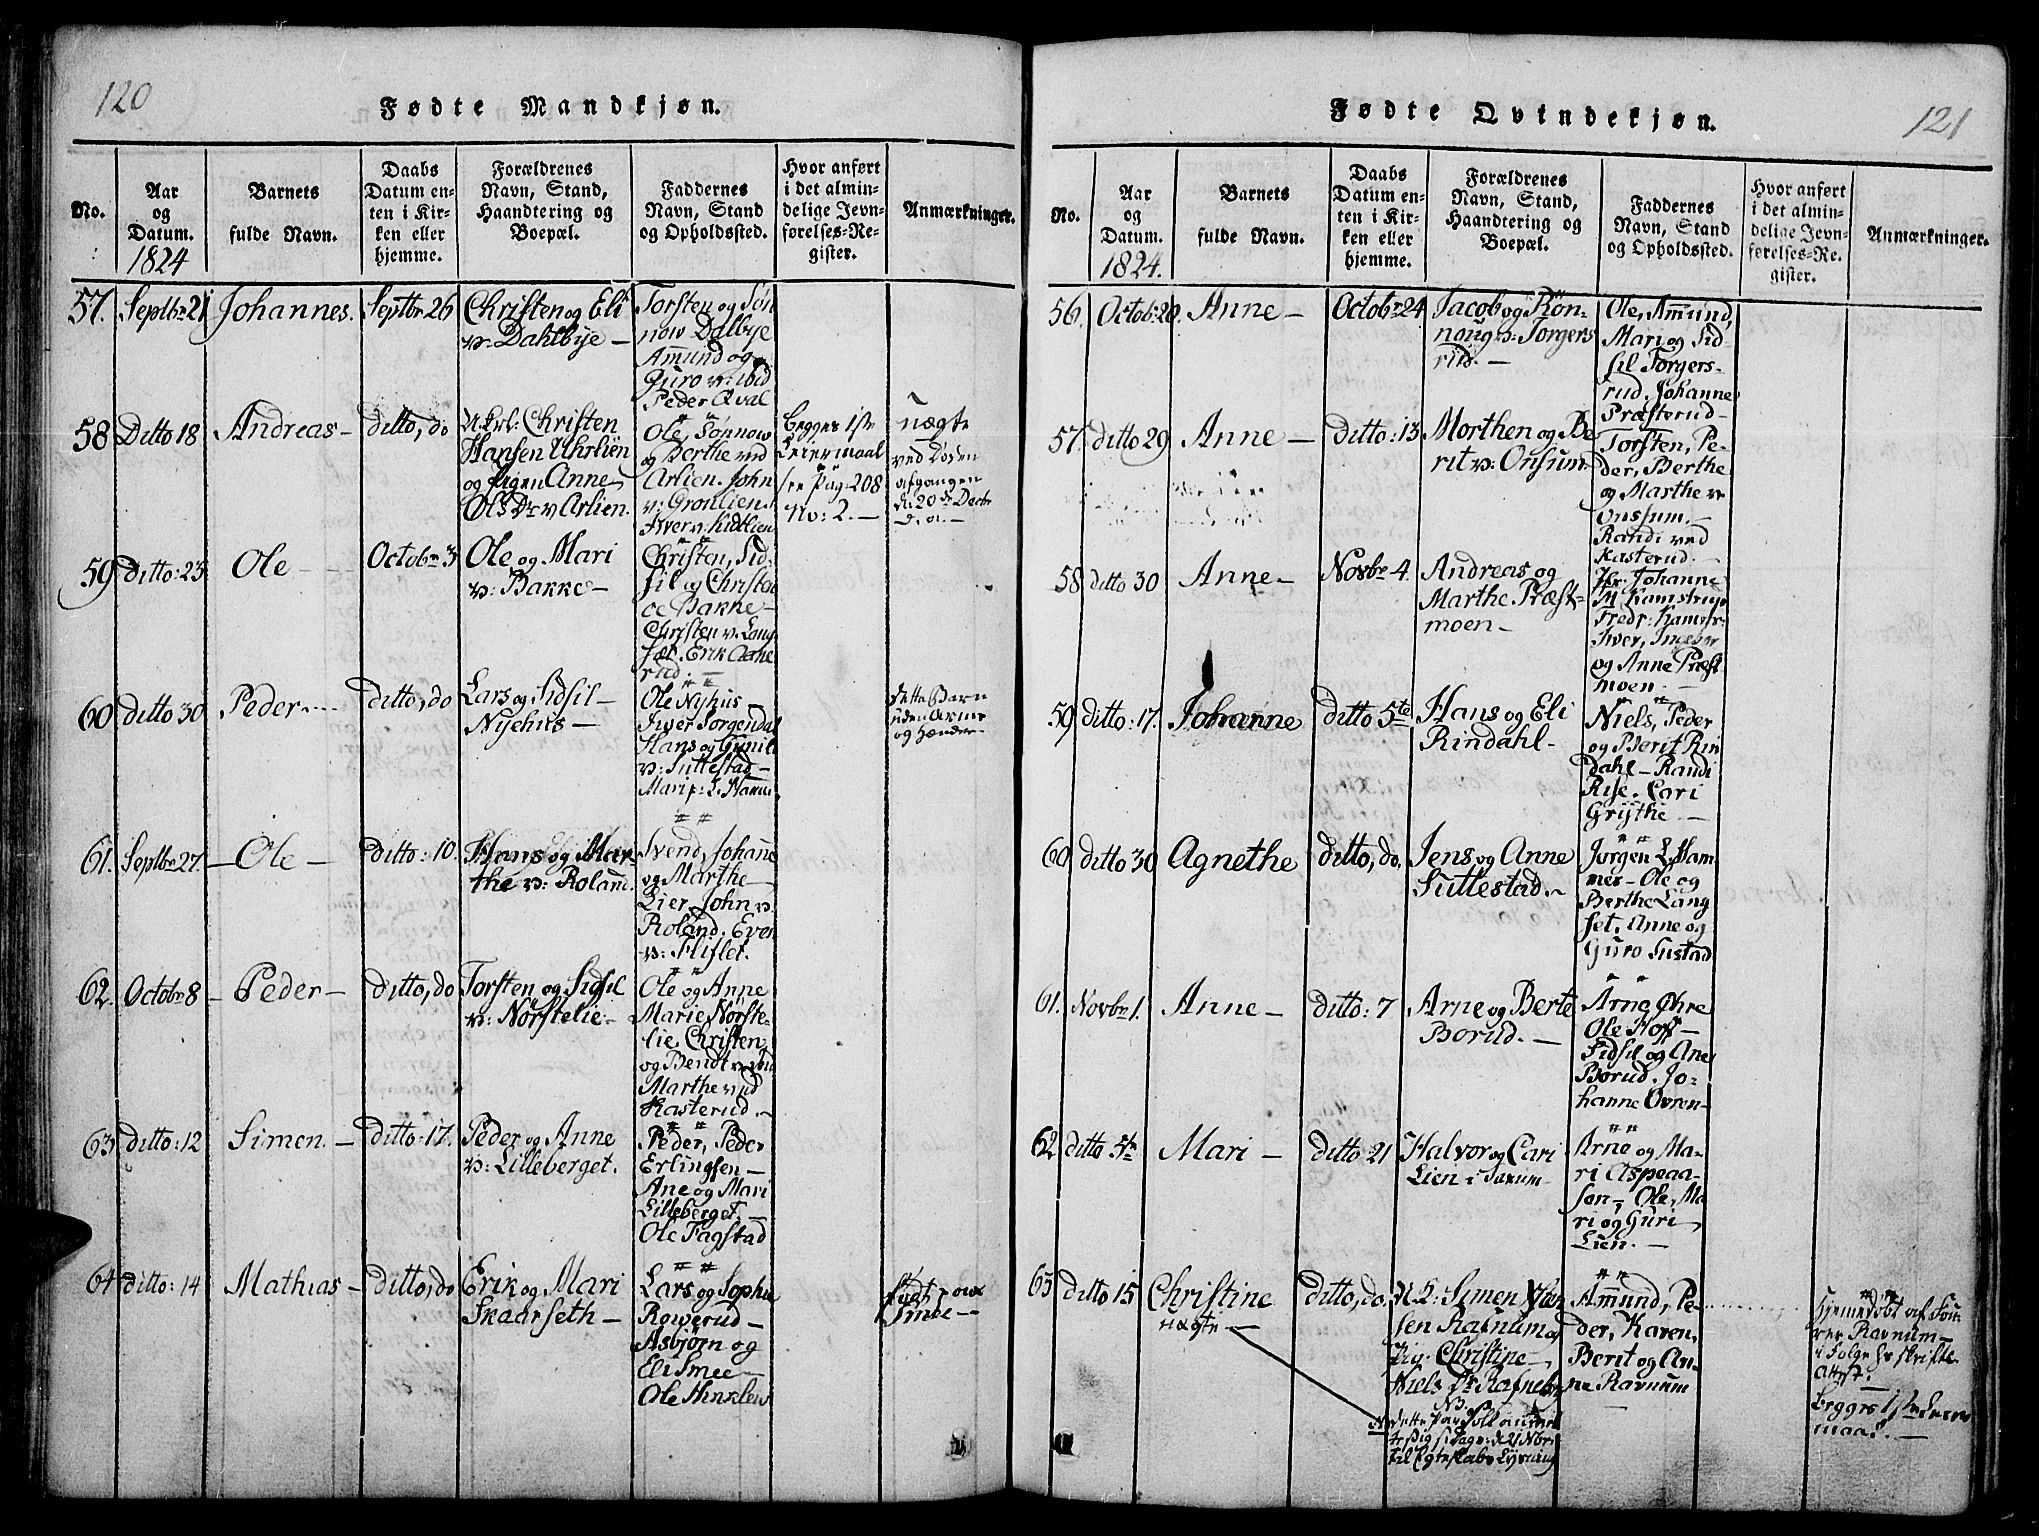 120
Fødte Mandkjøn.
No.
Aar
og
Datum.
1824
Barnets
fulde Navn.
Daabs
Datum en-
ten i Kir-
ken eller
hjemme.
Forældrenes
Navn, Stand,
Haandtering og
Boepæl.
Faddernes
Navn, Stand
og Opholdssted.
Hvor anført
i det almin-
delige Jevn-
førelses-Re-
gister.
Anmærkninger.
57. Septbr 21 Johannes. Septbr 26
Christen og Eli
v: Dahlbye —
Torsten og Søn
now Dalbye
Amund og
Guro v: ibid
Peder Qval
58 Ditto 18 Andreas — ditto, do
U. Krl: Christen
Hansen Uhrlien
og Pigen Anne
Ols Dr v Arlien.
Ole, Sønnow
og Berthe ved
Arlien. John
v: Grønlien.
Iver v: Kidtlien
begges 1ste
Leiermaal
see Pag: 208
No: 2. —
nægte
ved Døden
afgangen
d: 20de Decbr
d. a. —
59 ditto: 23 Ole — Octobr 3
Ole og Mari
v: Bakke —
Christen, Sid-
sil og Christen
Bakke —
Christen v: Lang
sæt. Erik
rud. —
60 ditto 30 Peder — ditto, do
Lars og Sidsil —
Nyehus —
Ole Nyhus
Iver Jørgendal
Hans og Gunil
v: Suttestad —
dette Barn
uden Arme
og Hænder —
61. Septbr 27. — Ole — ditto: 10.
Hans og Mar-
the v: Roland.
Svend, Johanne
og Marthe
Lier. John v.
Roland. Even
v: Flislet.
62. Octobr 8 — Peder — ditto, do
Torsten og Sidsil
v: Nørstelie —
Ole og Anne
Marie Nørste-
lie, Christen
og Bendt v: ibid
Marthe ved
Kasterud. —
63 ditto: 12 Simen. — ditto: 17.
Peder og Anne
v: Lilleberget.
Peder, Peder
Erlingsen —
Ane og Mari
Lilleberget. —
Ole Fagstad
64 ditto: 14 Mathias — ditto, do
Erik og Mari
Skaarseth —
Lars og Sophie
Roverud —
Asbjørn og
Eli Smee —
Ole Hinklew
født paa
Smee —
121
Fødte Qvindekjøn.
No.
Aar
og
Datum.
1824.
Barnets
fulde Navn.
Daabs
Datum en-
ten i Kir-
ken eller
hjemme.
Forældrenes
Navn, Stand,
Haandtering og
Boepæl.
Faddernes
Navn, Stand
og Opholdssted.
Hvor anført
i det almin-
delige Jevn-
førelses-Re-
gister.
Anmærkninger.
56. Octob: 20. Anne — Octobr 24
Jacob og Røn-
noug v: Torgers
rud. —
Ole, Amund,
Mari og Sid-
sil Torgers-
rud. Johanne
Præsterud —
57. ditto 29 Anne — Ditto: 13
Morthen og Be
rit v: Onsum —
Torsten, Pe-
der, Berthe
og Marthe v:
Onssum. —
Randi ved
Kasterud. —
58 ditto 30 Anne — Novbr 4.
Andreas og
Marthe Præst-
moen —
Johanne
Kamstrup
Fredr:
Iver, Ingebor
og Anne Præst
moen —
59 ditto: 17. Johanne Ditto 5te
Hans og Eli
Rindahl —
Niels, Peder
og Berit Rin
dahl — Randi
Rise. Cari
Grythe —
60 ditto 30 Agnethe ditto, do,
Jens og Anne
Suttestad. —
Jørgen L: Ham
mer — Ole og
Berthe Lang
set. Anne og
Guro Sustad
61. Novbr 1. Anne — ditto: 7
Arne og Berte
Borud. —
Arne Øhre
Ole Hoff —
Sidsil og Ane
Borud. Jo-
hanne Ovren —
62 ditto 5te Mari — ditto: 21
Halvor og Cari
Lien i Saxum —
Arne og Ma-
ri Aspeaa-
sen, Ole, Ma
ri og Guri
Lien. —
63 ditto 15 Christine ditto, do.
uægte —
U. K: Simen
sen Rafnum og
Pig: Christine —
Niels Dr Rafnum
NB
dette Par
sig i Dag: d: 21 Nbr
til Egteskabs Lysning
Amund, Pe-
der, Karen,
Berit og An-
ne Ravnum
hjemmedøbt af
Ravnum —
i Følge skriftl:
Attest. —
begges 1ste Leier
maal. —